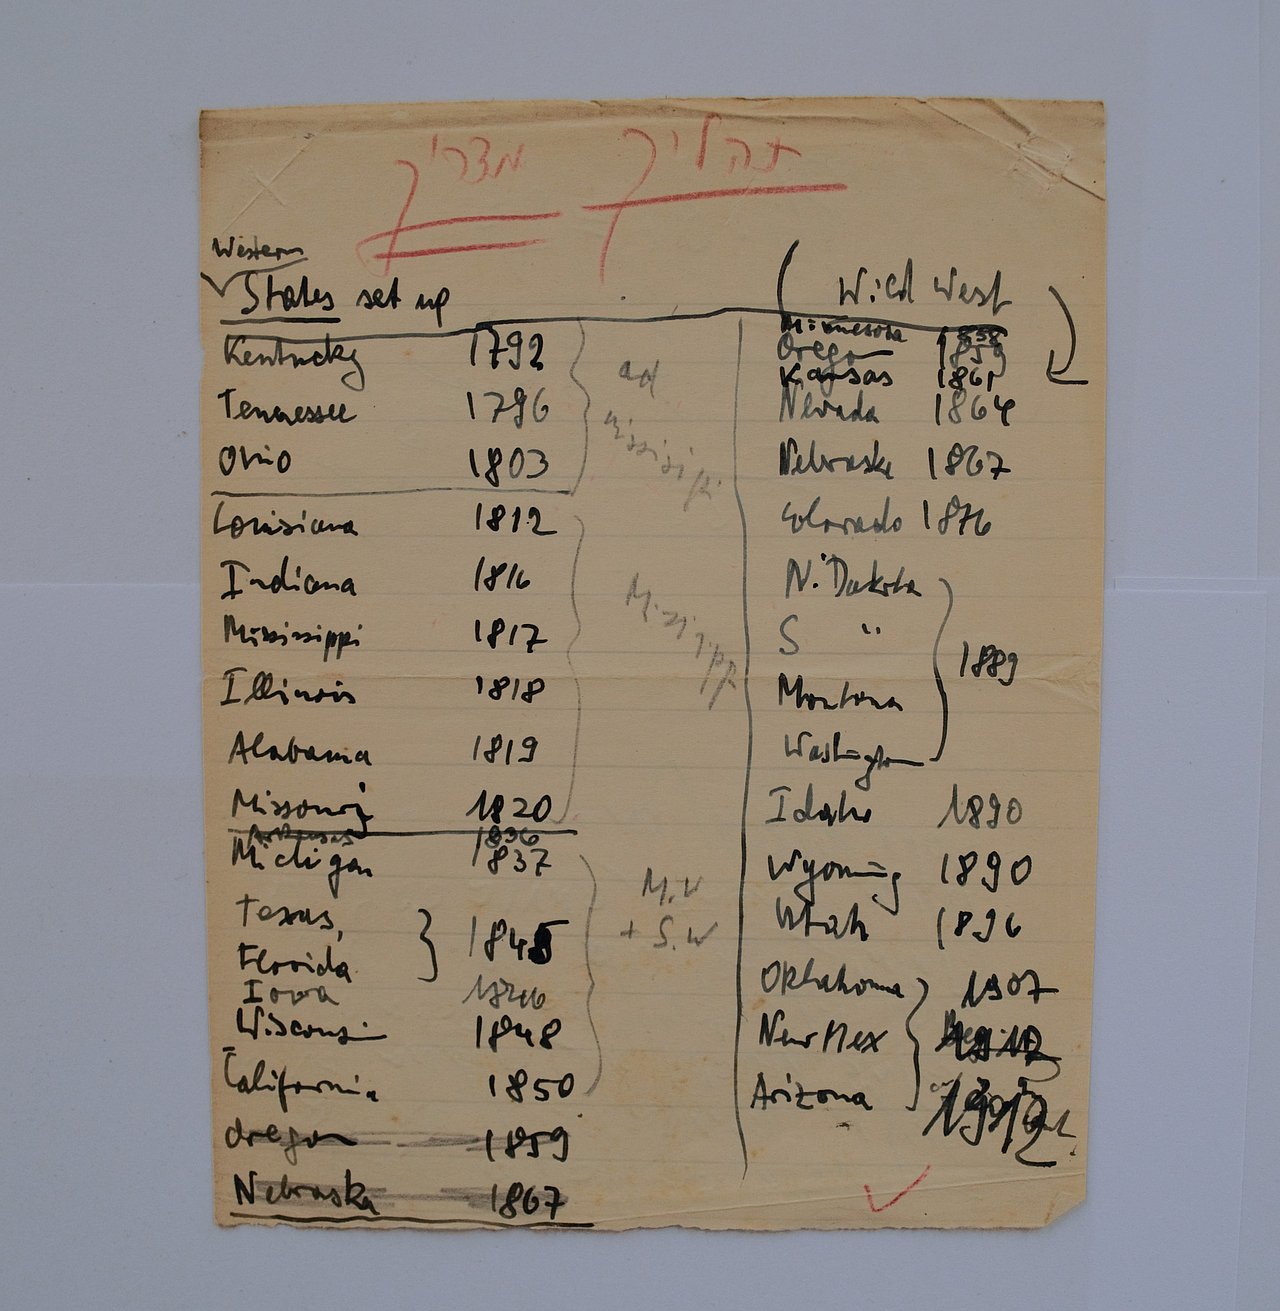 תהליך מצריך
Western
States set up
Kentucky 1792
Tennessee 1796
Ohio 1803
ad
Missisipi
Louisiana 1812
Indiana 1816
Mississippi 1817
Illinois 1818
Alabama 1819
Missouri 1820
Missisippi
Arkansas 1836
Michigan 1837
Texas,
Florida 1845
Iowa 1846
Wisconsin 1848
California 1850
M.W
+ S.W
Oregon 1859
Nebraska 1867
Wild West
Minnesota 1858
Oregon 1859
Kansas 1861
Nevada 1864
Nebraska 1867
Colorado 1876
N. Dakota
S "
Montana
Washington
1889
Idaho 1890
Wyoming 1890
Utah 1896
Oklahoma 1907
New Mex
Arizona 1912